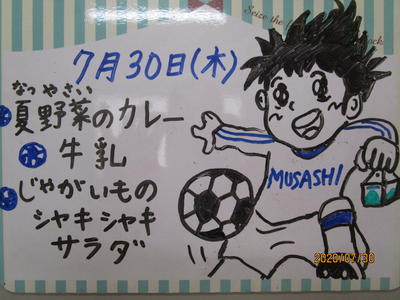 Seize the
ock
7月30日(木)
なつやさい
夏野菜のカレー
牛乳
じゃがいもの
シャキシャキ
サラダ
MUSASHI
2020/07/30